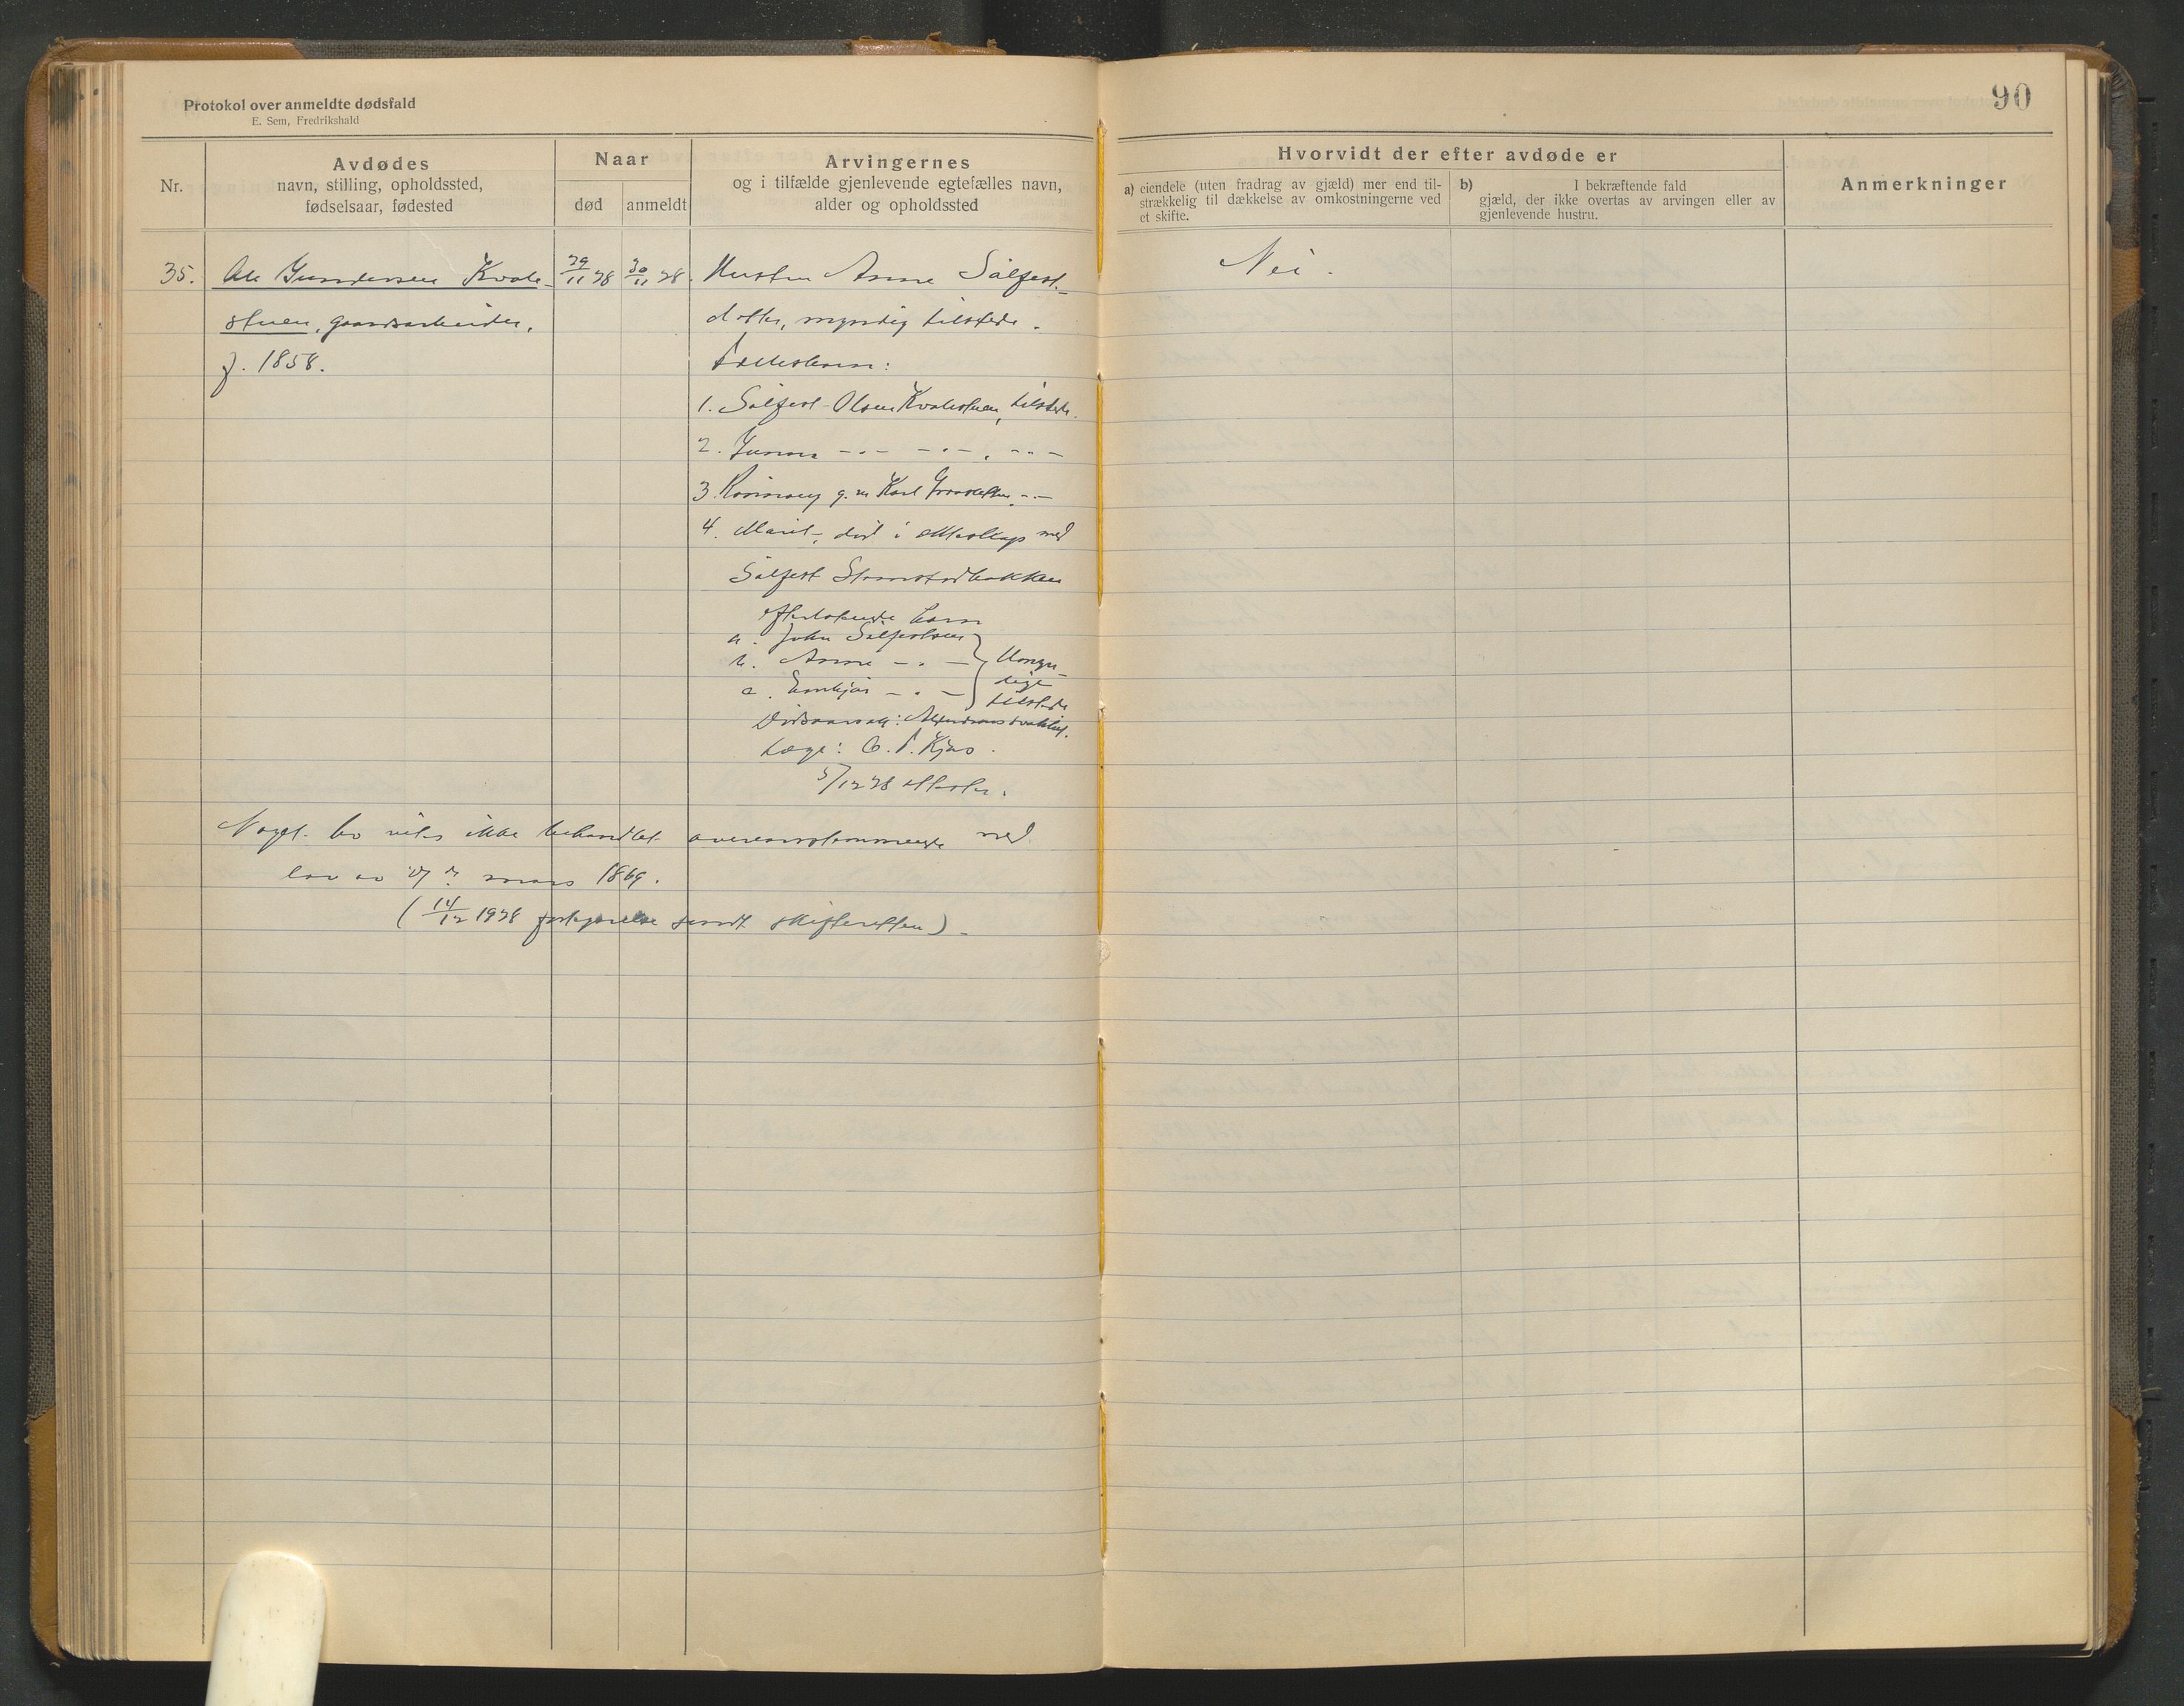 Protokol over anmeldte dødsfald
E. Sem, Fredrikshald
90
Nr.
Avdødes
navn, stilling, opholdssted,
fødselsaar, fødested
Naar
død
anmeldt
Arvingernes
og i tilfælde gjenlevende egtefælles navn,
alder og opholdssted
Hvorvidt der efter avdøde er
a) eiendele (uten fradrag av gjæld) mer end til-
strækkelig til dækkelse av omkostningerne ved
et skifte.
b) I bekræftende fald
gjæld, der ikke overtas av arvingen eller av
gjenlevende hustru.
Anmerkninger
35.
Ole Gundersen Kvale-
stuen, gaardsarbeider,
f. 1858.
29/11 28
30/11 28.
Hustru Anne Sålfest-
datter, myndig tilstede.
Fællesbarn:
1. Sålfest Olsen Kvalestuen, tilstede.
2. Gunnar -"- -"-, -"-
3. Rønnaug g. m. Karl -"-
4. Marit, død i ekteskap med
Sålfest
efterlatende barn
a. John Sålfestsen
b. Anne - " -
c. - " -
Umyn-
dige
tilstede
Dødsaarsak:
Læge: C. F. Kjøs.
5/12 28 attester.
Noget bo vites ikke behandlet overensstemmende med
lov av 27de mars 1869.
(14/12 1928 sendt skifteretten).
Nei.